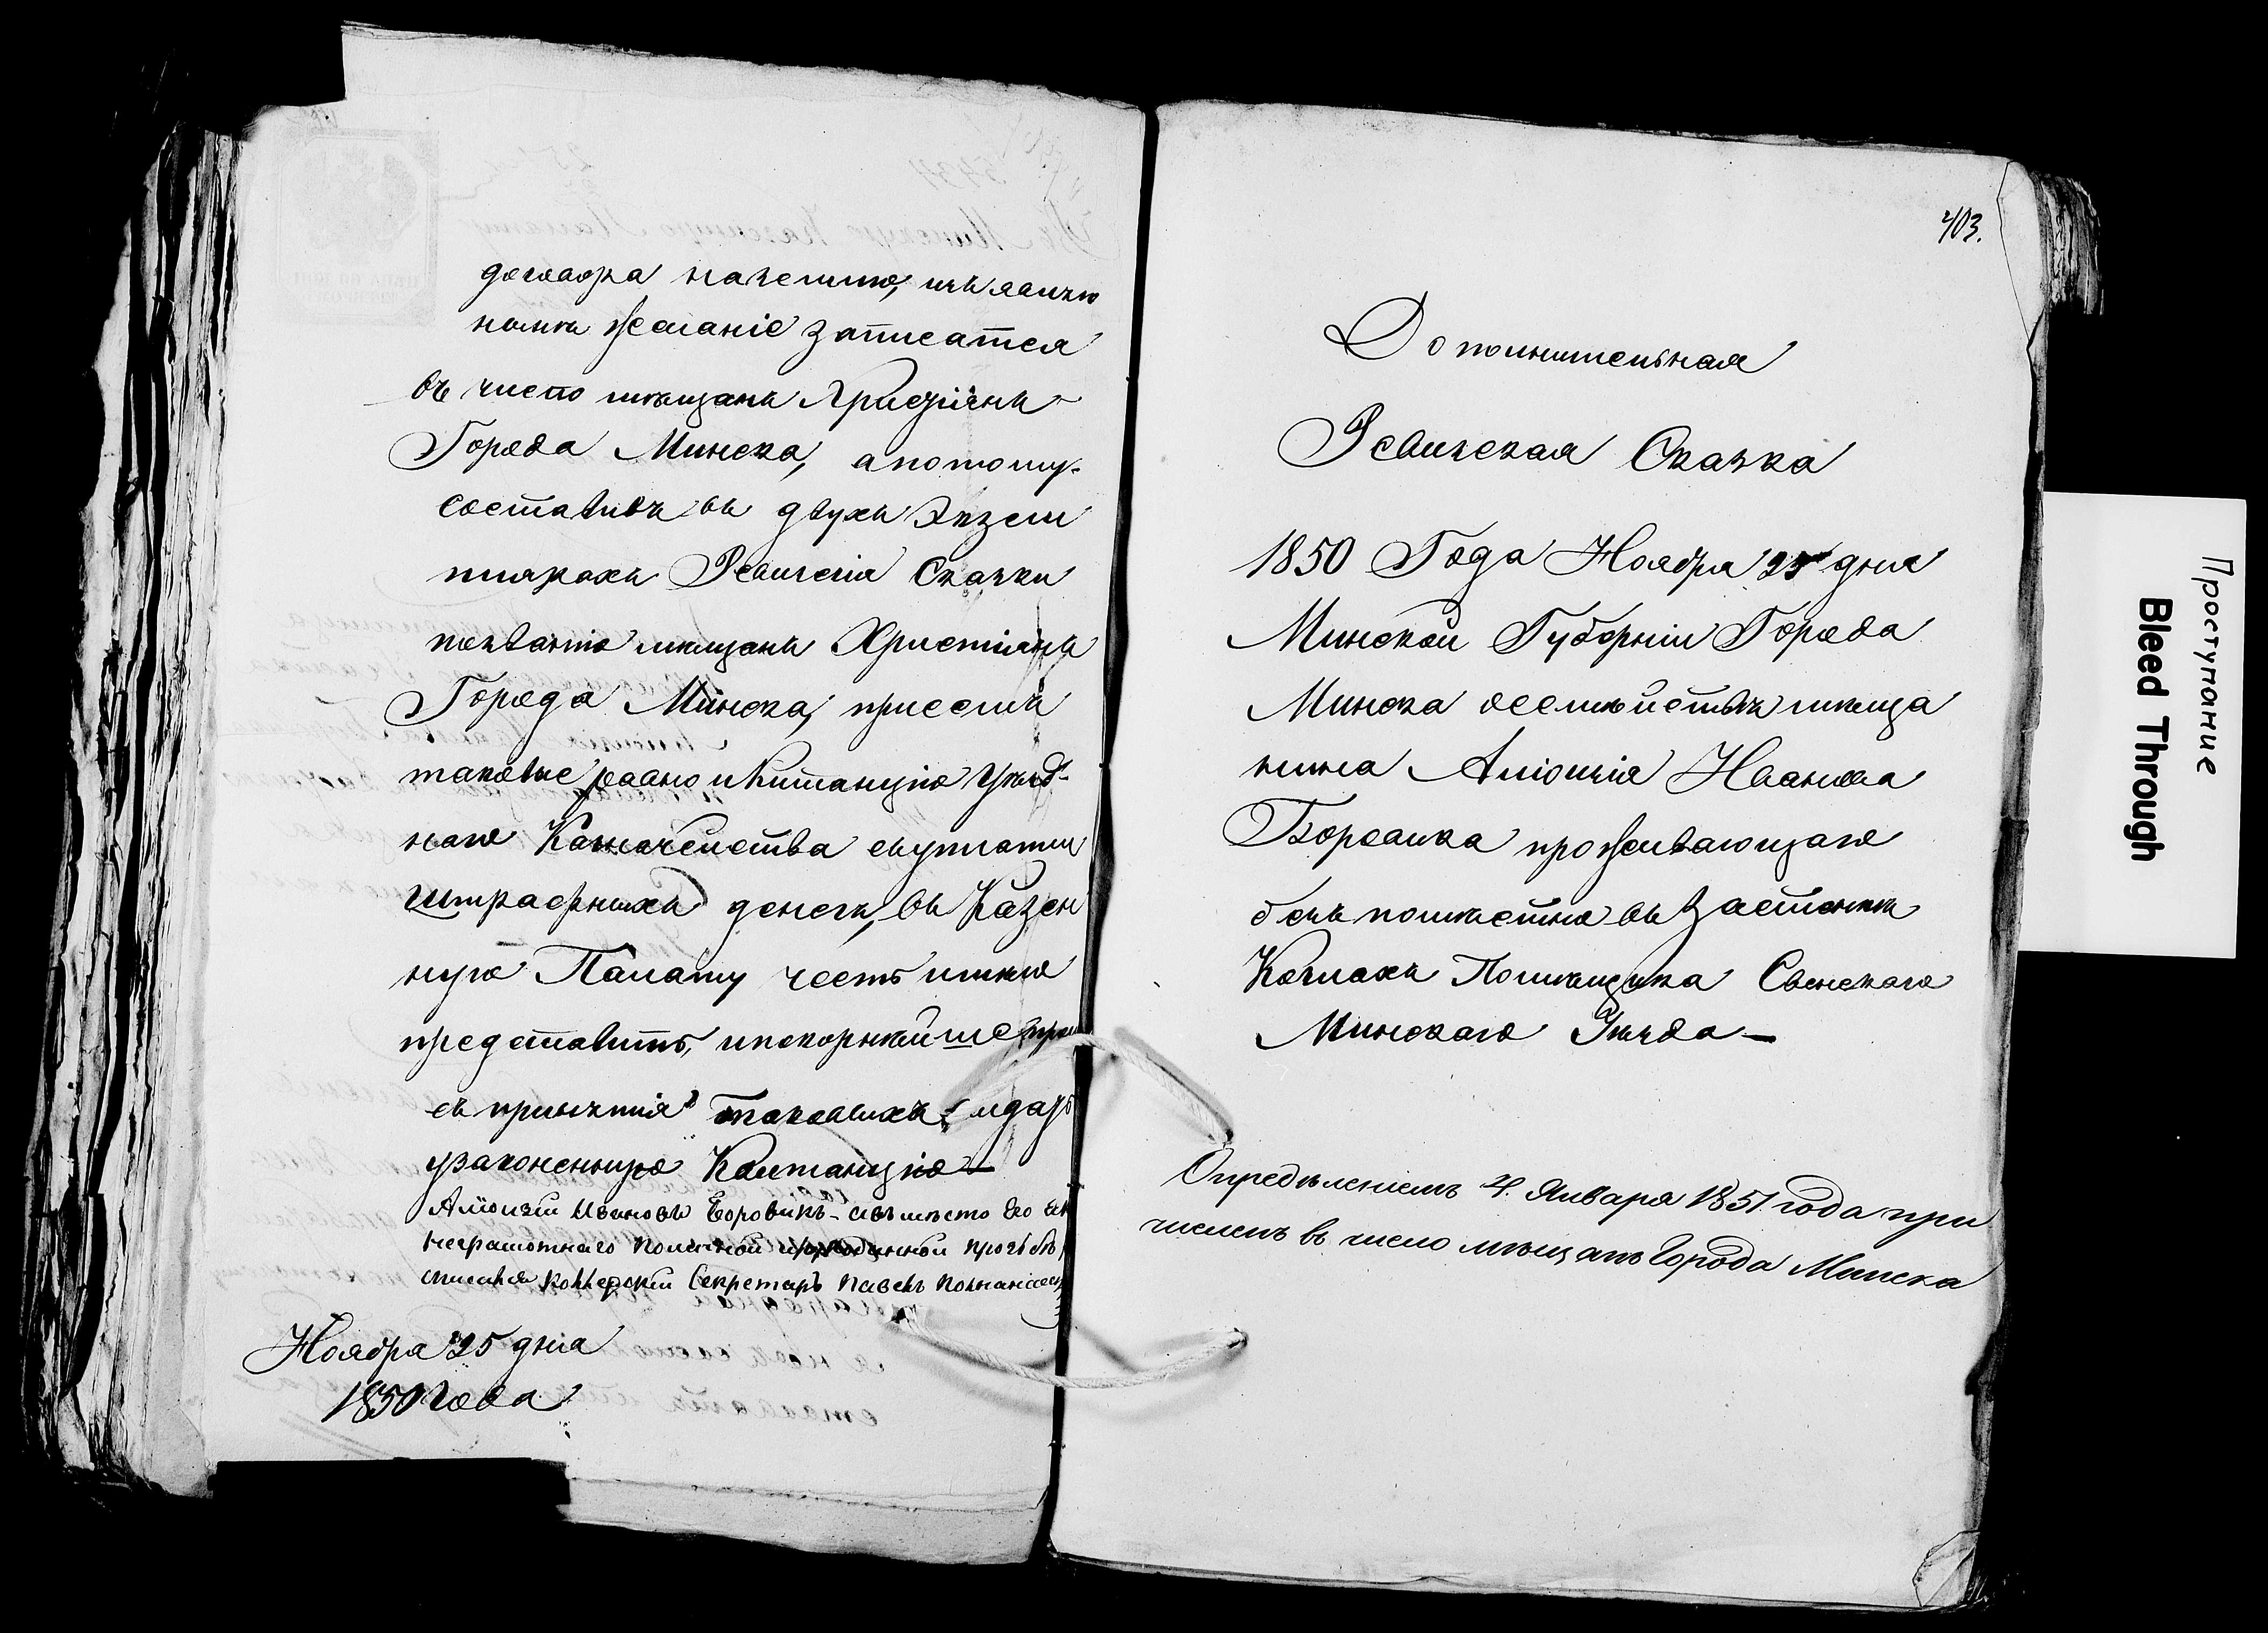 договора
нынѣ желаніе записатся
въ число мѣщанъ Християнъ
Города Минска, апотому
составивъ въ двухъ Экзем
плярахъ Ревизскія Сказки
позванію мѣщанъ Християнъ
Города Минска, присемъ
таковые равно и Квитанцію Уѣзд
наго Казначейства
штрафныхъ денегъ, въ Казен
ную Палату честь имѣю
представить, ипокорнейше
принятія таковыхъ
узаконенную Квитанцію —
Алюизій Ивановъ Боровикъ -
неграмотнаго поличной прозьбѣ
Колежский Секретарь Павелъ
Ноября 25 дня
1850 Года
403.
Дополнительная
Ревизская Сказка
1850 Года Ноября 25 дня
Минской Губерніи Города
Минска осемѣйствѣ мѣща
нина Алюизія Иванова
Боровика проживающаго
безъ помѣстно въ Застенкѣ
Помѣщика Свенскаго
Минскаго Уѣзда —
Определеніемъ 4. Января 1851 года при
численъ въ число мѣщанъ Города Минска
Проступание
Bleed Through